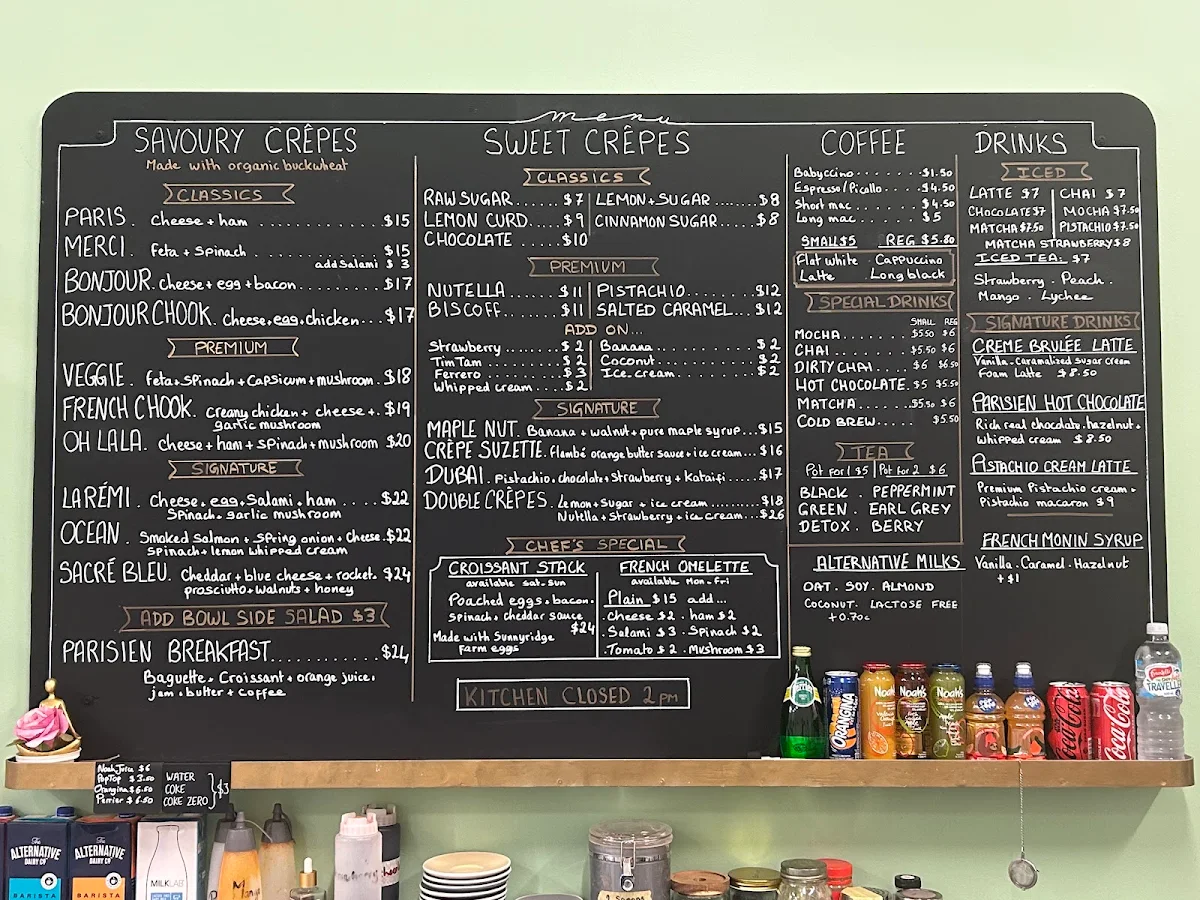 menu
SAVOURY CRÊPES
Made with organic buckwheat
CLASSICS
PARIS. Cheese + ham ............ $15
MERCI. feta + Spinach ............ $15
add Salami $ 3
BONJOUR. cheese + egg + bacon ........ $17
BONJOUR CHOOK. cheese, egg, chicken... $17
PREMIUM
VEGGIE. feta + Spinach + Capsicum + mushroom. $18
FRENCH CHOOK. Creamy chicken + cheese +. $19
garlic mushroom
OH LALA. cheese + ham + Spinach + mushroom $20
SIGNATURE
LA RÉMI. Cheese, egg, Salami, ham .... $22
Spinach + garlic mushroom
OCEAN. Smoked Salmon + Spring onion + Cheese. $22
spinach + lemon whipped cream
SACRÉ BLEU. Cheddar + blue cheese + rocket. $24
prosciutto + walnuts + honey
ADD BOWL SIDE SALAD $3
PARISIEN BREAKFAST............ $24
Baguette + Croissant + orange juice +
jam + butter + coffee
SWEET CRÊPES
CLASSICS
RAW SUGAR...... $7
LEMON CURD... $9
CHOCOLATE ..... $10
LEMON + SUGAR ....... $8
CINNAMON SUGAR..... $8
PREMIUM
NUTELLA ....... $11
BISCOFF....... $11
PISTACHIO......... $12
SALTED CARAMEL... $12
ADD ON...
Strawberry ...... $ 2
TimTam ...... $ 2
Ferrero ...... $ 3
Whipped cream .... $ 2
Banana ........ $ 2
Coconut ........ $ 2
Ice-cream ....... $ 2
SIGNATURE
MAPLE NUT. Banana + walnut + pure maple syrup... $15
CRÊPE SUZETTE. Flambé orange butter sauce + ice cream... $16
DUBAI. Pistachio, chocolate + Strawberry + Kataifi ..... $17
DOUBLE CRÊPES. Lemon + Sugar + ice cream ......... $18
Nutella + Strawberry + ice cream.... $26
CHEF'S SPECIAL
CROISSANT STACK
available sat-sun
Poached eggs + bacon +
Spinach + cheddar sauce
$24
Made with Sunnyridge
Farm eggs
FRENCH OMELETTE
available Mon-Fri
Plain $15 add...
. Cheese $2 . ham $2
. Salami $3 . Spinach $2
. Tomato $ 2 . Mushroom $3
KITCHEN CLOSED 2 PM
COFFEE
Babyccino ........ $1.50
Espresso/Picollo .... $4.50
Short mac ........ $4.50
Long mac ........ $5
SMALL $5 REG $5.80
Flat white . Cappuccino
Latte . Long black
SPECIAL DRINKS
SMALL REG
MOCHA ........ $5.50 $6
CHAI ........ $5.50 $6
DIRTY CHAI .... $6 $6.50
HOT CHOCOLATE. $5 $5.50
MATCHA ....... $5.50 $6
COLD BREW.... $5.50
TEA
Pot for 1 $5 | Pot for 2 $ 6
BLACK . PEPPERMINT
GREEN . EARL GREY
DETOX . BERRY
ALTERNATIVE MILKS
OAT. SOY. ALMOND
COCONUT. LACTOSE FREE
+0.70c
DRINKS
ICED
LATTE $7
CHOCOLATE $7
MATCHA $7.50
CHAI $ 7
MOCHA $7.50
PISTACHIO $7.50
MATCHA STRAWBERRY $8
ICED TEA: $7
Strawberry . Peach .
Mango . Lychee
SIGNATURE DRINKS
CREME BRULÉE LATTE
Vanilla - Caramalized Sugar Cream
Foam Latte $ 8.50
PARISIEN HOT CHOCOLATE
Rich real chocolate, hazelnut +
whipped cream $ 8.50
PISTACHIO CREAM LATTE
Premium Pistachio cream +
Pistachio macaron $ 9
FRENCH MONIN SYRUP
Vanilla . Caramel . Hazelnut
+ $1
Perrier
ORANGINA
Noah's
Noah's
Noah's
Coca-Cola
Coca-Cola
TRAVELLER
Noah Juice $6
PopTop $ 3.50
Orangina $ 6.50
Perrier $ 6.50
WATER
COKE
COKE ZERO
$3
The
ALTERNATIVE
DAIRY CO
BARISTA
The
ALTERNATIVE
DAIRY CO
BARISTA
MILKLAB